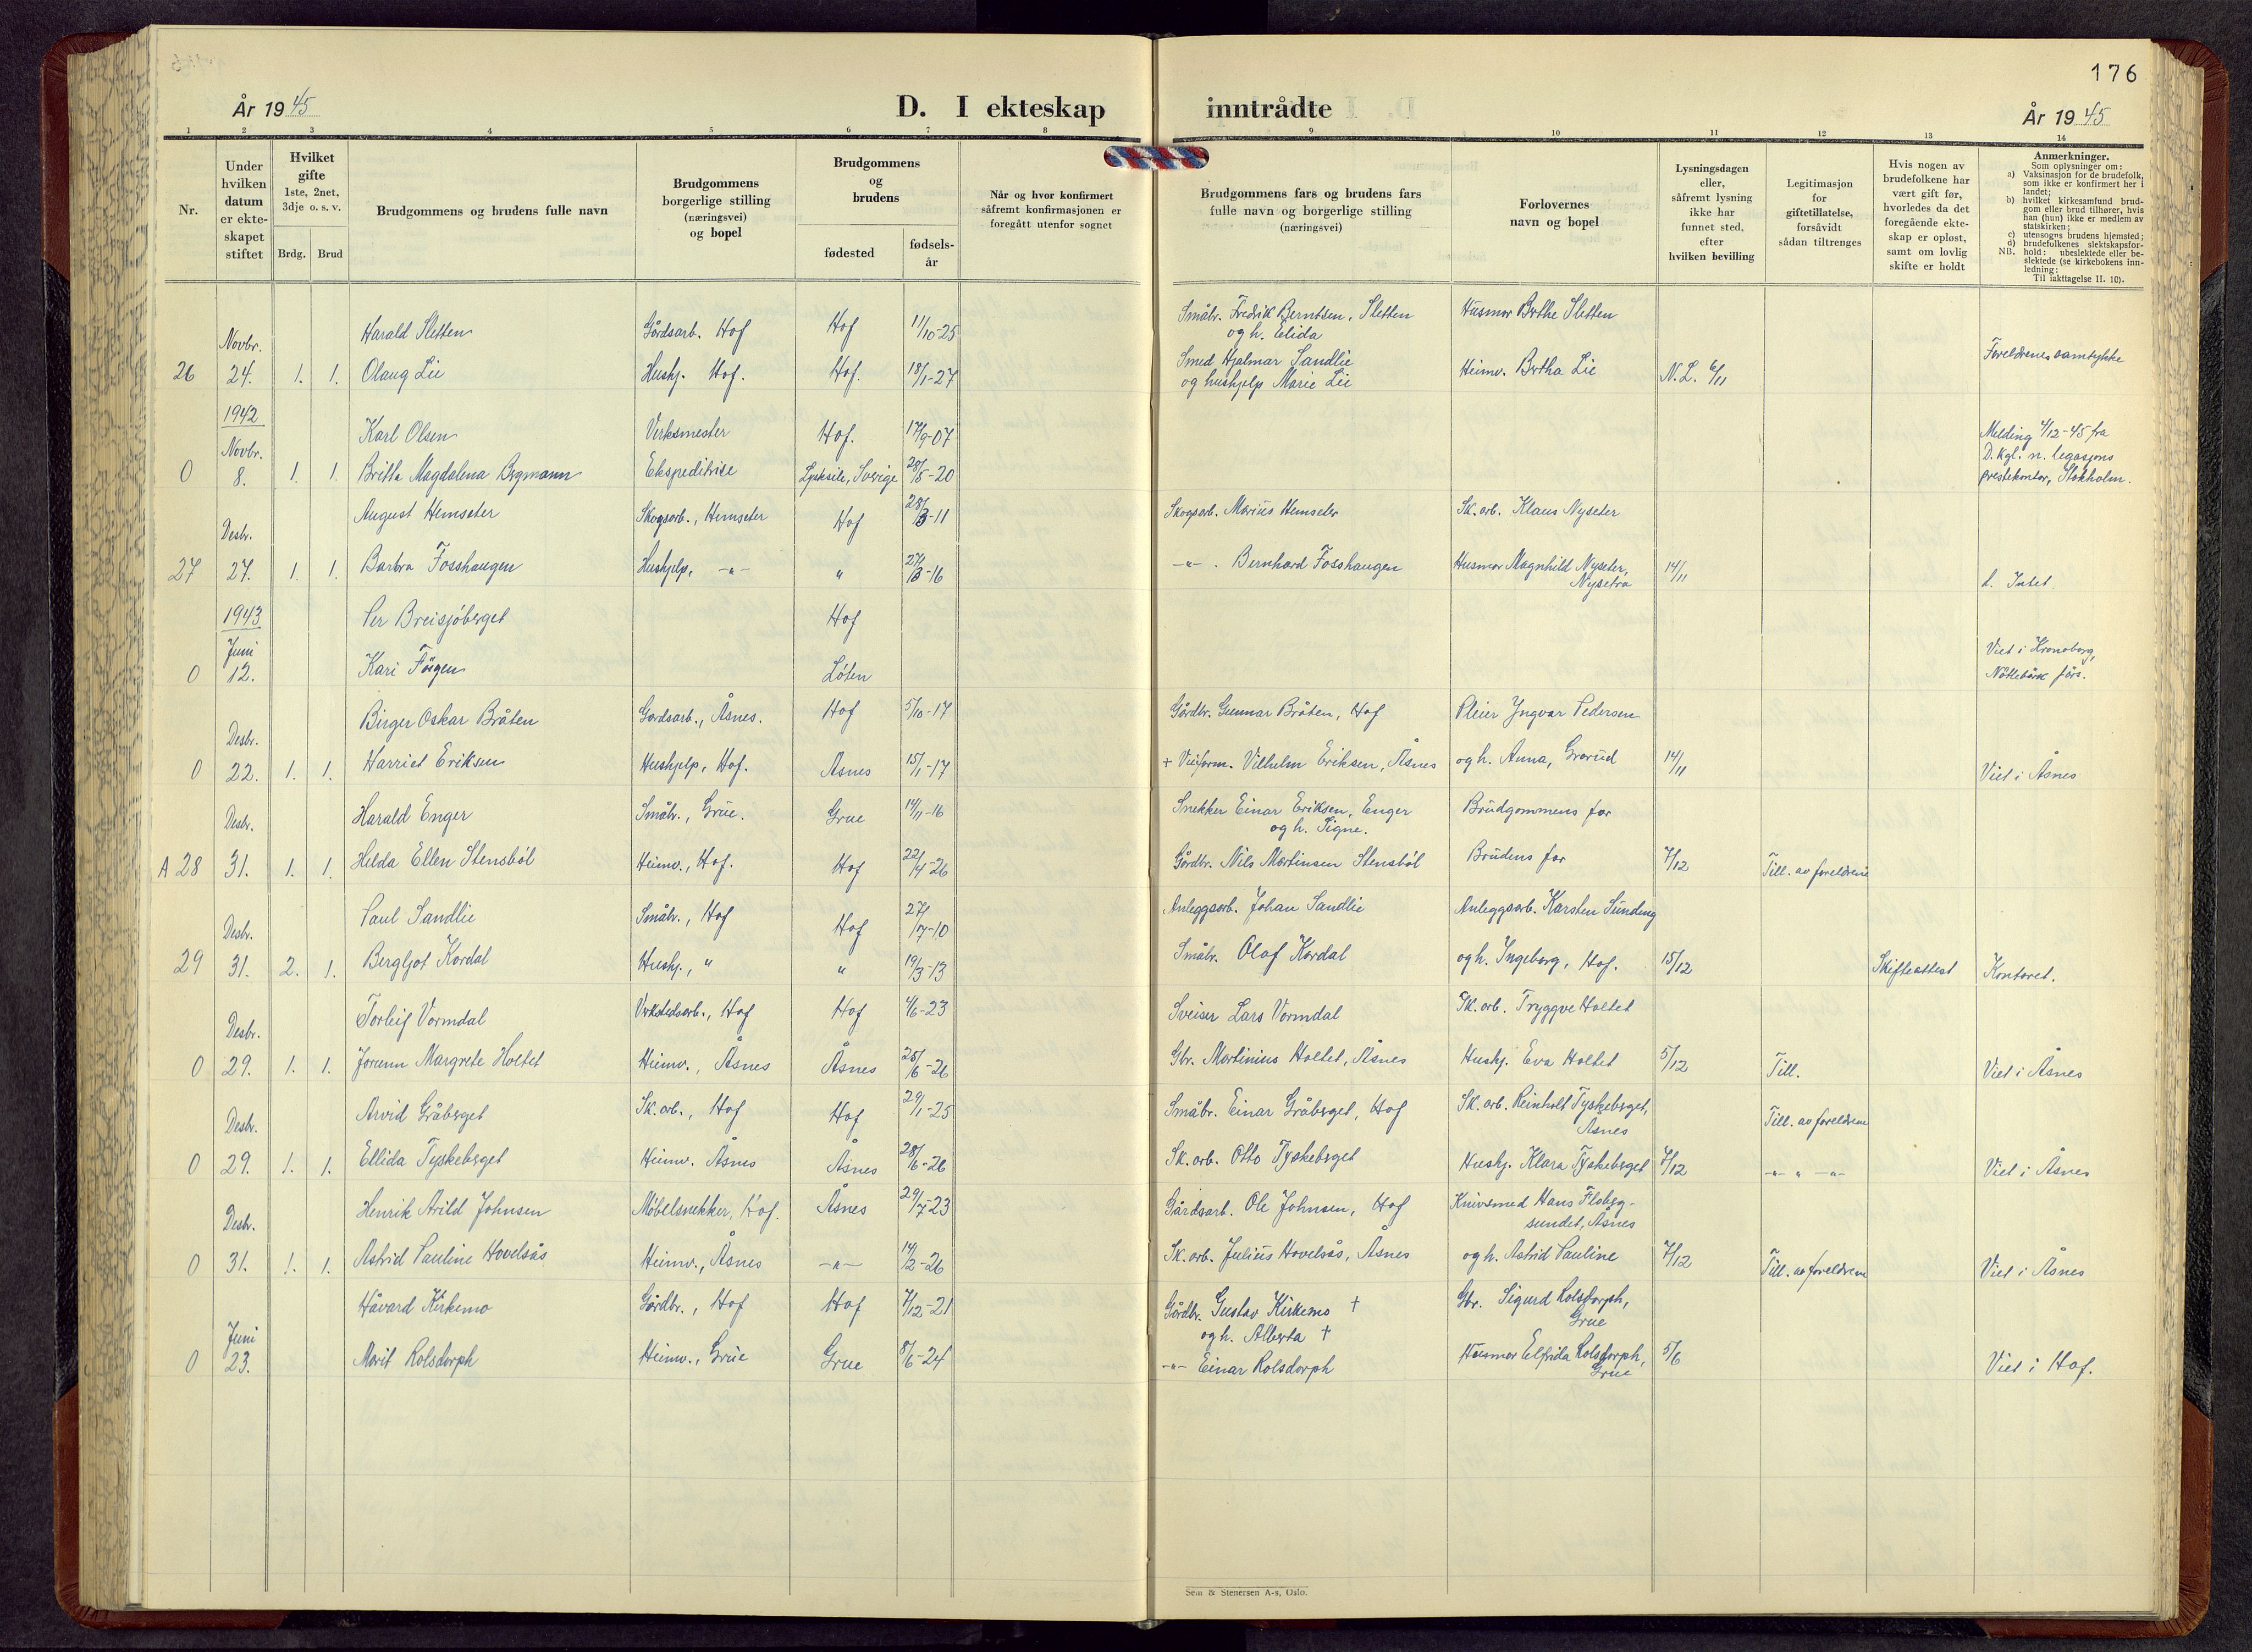 176
År 1945
D. I ekteskap
inntrådte
År 1945
1 2 3 4 5 6 7 8 9 10 11 12 13 14
Nr.
Under
hvilken
datum
er ekte-
skapet
stiftet
Hvilket
gifte
1ste, 2net,
3dje o. s. v.
Brdg. Brud
Brudgommens og brudens fulle navn
Brudgommens
borgerlige stilling
(næringsvei)
og bopel
Brudgommens
og
brudens
fødested
fødsels-
år
Når og hvor konfirmert
såfremt konfirmasjonen er
foregått utenfor sognet
Brudgommens fars og brudens fars
fulle navn og borgerlige stilling
(næringsvei)
Forlovernes
navn og bopel
Lysningsdagen
eller,
såfremt lysning
ikke har
funnet sted,
efter
hvilken bevilling
Legitimasjon
for
giftetillatelse,
forsåvidt
sådan tiltrenges
Hvis nogen av
brudefolkene har
vært gift før,
hvorledes da det
foregående ekte-
skap er opløst,
samt om lovlig
skifte er holdt
Anmerkninger.
Som oplysninger om:
a) Vaksinasjon for de brudefolk,
som ikke er konfirmert her i
landet;
b) hvilket kirkesamfund brud-
gom eller brud tilhører, hvis
han (hun) ikke er medlem av
statskirken;
c) utensogns brudens hjemsted;
d) brudefolkenes slektskapsfor-
hold: ubeslektede eller be-
slektede (se kirkebokens inn-
ledning:
NB. Til iakttagelse II. 10).
Novbr. Harald Sletten Gårdsarb. Hof Hof 11/10-25 Småbr. Fredrik Berntsen, Sletten Husmor Berthe Sletten
og h. Elida
26 24. 1. 1. Olaug Lie Hushj. Hof. Hof. 18/1-27 Smed Hjalmar Sandlie Heimv. Bertha Lie N.L. 6/11 Foreldrenes samtykke
og hushjelp Marie Lie
1942
Novbr. Karl Olsen Verksmester Hof. 17/9-07 Melding 4/12-45 fra
D. kgl. n. legasjons
0 8. 1. 1. Britta Magdalena Bergmann Ekspeditrise Lycksele, Sverige 28/5-20 prestekontor, Stokholm.
Desbr. August Hemseter Skogsarb., Hemseter Hof 28/3-11 Skogsarb. Marius Hemseter Sk.arb. Klaus Nyseter
27 27. 1. 1. Barbra Fosshaugen Hushjelp, -"- " 27/3-16 -"-. Bernhard Fosshaugen Husmor Magnhild Nyseter, 14/11 d. Intet
Nysetra
1943
Juni Per Breisjøberget Hof
0 12. Kari Føigen Løten Viet i Kronoberg,
Nöttebäck förs.
Desbr. Birger Oskar Bråten Gardsarb., Åsnes. Hof 5/10-17 Gårdbr. Gunnar Bråten, Hof Pleier Yngvar Pedersen
0 22. 1. 1. Harriet Eriksen Hushjelp, Hof. Åsnes 15/1-17 + Veiform. Vilhelm Eriksen, Åsnes og h. Anna, Grorud 14/11 Viet i Åsnes
Desbr. Harald Enger Småbr., Grue. Grue 14/11-16 Snekker Einar Eriksen, Enger Brudgommens far
og h. Signe.
A 28 31. 1. 1. Helda Ellen Stensbøl Heimv., Hof. Hof 22/4-26 Gårdbr. Nils Martinsen Stensbøl Brudens far 7/12 Till. av foreldrene
Desbr. Paul Sandlie Småbr., Hof Hof 27/7-10 Anleggsarb. Johan Sandlie Anleggsarb. Karsten Sundeng
29 31. 2. 1. Bergljot Kordal Hushj., " " 19/3-13 Småbr. Olaf Kordal og h. Ingeborg, Hof. 15/12 Skifteattest Kontoret.
Desbr. Torleif Vormdal Verkstedsarb., Hof Hof 4/6-23 Sveiser Lars Vormdal Sk.arb. Tryggve Holtet
0 29. 1. 1. Jorunn Margrete Holtet Heimv., Åsnes Åsnes 25/6-26 Gbr. Martinius Holtet, Åsnes Hushj. Eva Holtet 5/12 Till. Viet i Åsnes
Desbr. Arvid Gråberget Sk.arb., Hof Hof 29/1-25 Småbr. Einar Gråberget, Hof Sk.arb. Reinholt Tyskeberget, Till. av foreldrene
Åsnes
0 29. 1. 1. Ellida Tyskeberget Heimv. Åsnes Åsnes 28/6-26 Sk.arb. Otto Tyskeberget Hushj. Klara Tyskeberget 7/12 -"- " -"- Viet i Åsnes
Desbr. Henrik Arild Johnsen Møbelsnekker, Hof. Åsnes 29/7-23 Gårdsarb. Ole Johnsen, Hof Knivsmed Hans Flaberg-
sundet, Åsnes
0 31. 1. 1. Astrid Pauline Hovelsås Heimv., Åsnes -"- 14/2-26 Sk.arb. Julius Hovelsås, Åsnes og h. Astrid Pauline 7/12 Till. av foreldrene Viet i Åsnes
Juni Håvard Kirkemo Gårdbr., Hof Hof 7/12-21 Gårdbr. Gustav Kirkemo + Gbr. Sigurd Rolsdorph,
og h. Alberta + Grue
0 23. Marit Rolsdorph Heimv., Grue Grue 8/6-24 -"- Einar Rolsdorph Husmor Elfrida Rolsdorph, 5/6 Viet i Hof.
Grue
Sem & Stenersen A-s, Oslo.